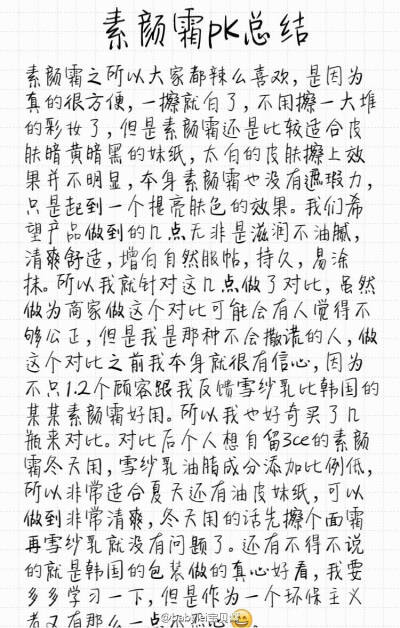 素颜霜pk总结
素颜霜之所以大家都辣么喜欢，是因为
真的很方便，一擦就白了，不用擦一大堆
的彩妆了，但是素颜霜还是比较适合皮
肤暗黄暗黑的妹纸，太白的皮肤擦上效
果并不明显，本身素颜霜也没有遮瑕力，
只是起到一个提亮肤色的效果。我们希
望产品做到的几点无非是滋润不油腻，
清爽舒适，增白自然服帖，持久，易涂
抹。所以我就针对这几点做了对比，虽然
做为商家做这个对比可能会有人觉得不
够公正，但是我是那种不会撒谎的人，做
这个对比之前我本身就很有信心，因为
不只1.2个顾客跟我反馈雪纱乳比韩国的
某某素颜霜好用。所以我也好奇买了几
瓶来对比。对比后个人想自留3ce的素颜
霜冬天用，雪纱乳油脂成分添加比例低，
所以非常适合夏天还有油皮妹纸，可以
做到非常清爽，冬天用的话先擦个面霜
再雪纱乳就没有问题了。还有不得不说
的就是韩国的包装做的真心好看，我要
多多学习一下，但是作为一个环保主义
者又有那么一点